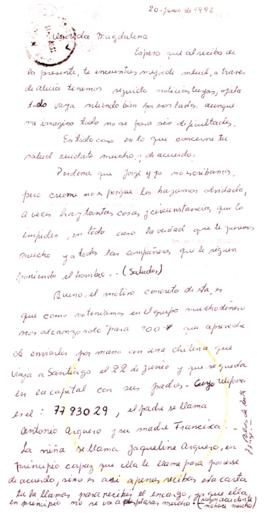 20-Junio de 1992
Querida Magdalena
Espero que al recibo de
la presente, te encuentres mejor de salud, a traves
de Alicia tenemos seguido noticias tuyas, ojala
todo vaya saliendo bien por esos lados, aunque
me imagino todo no se para sin dificultades.
En todo caso en lo que concierne tu
salud cuidate mucho ¡¡ de acuerdo.
Perdona que José y yo no escribamos,
pero creeme no es porque los hayamos olvidado,
a veces hay tantas cosas y circunstancias que lo
impiden, en todo caso la verdad que te queremos
mucho y a todas las compañeras que te siguen
poniendo el hombro... (Saludos)
Bueno, el motivo concreto de esta, es
que como no teniamos en el grupo mucho dinero
nos alcanzo solo para 700 que aproveche
de enviarlos por mano con una chilena que
viaja a Santiago el 22 de Junio y que se queda
en la capital con sus padres - cuyo telefono
es el: 7793029, el padre se llama
Antonio Arquero y su madre Francisca.
La niña se llama Jaqueline Arquero, en
principio capaz que ella te llame para ponerse
de acuerdo, pero es asi apenas recibas esta carta
tu la llamas para recibir el encargo, ya que ella
en principio no se va a quedar mucho.